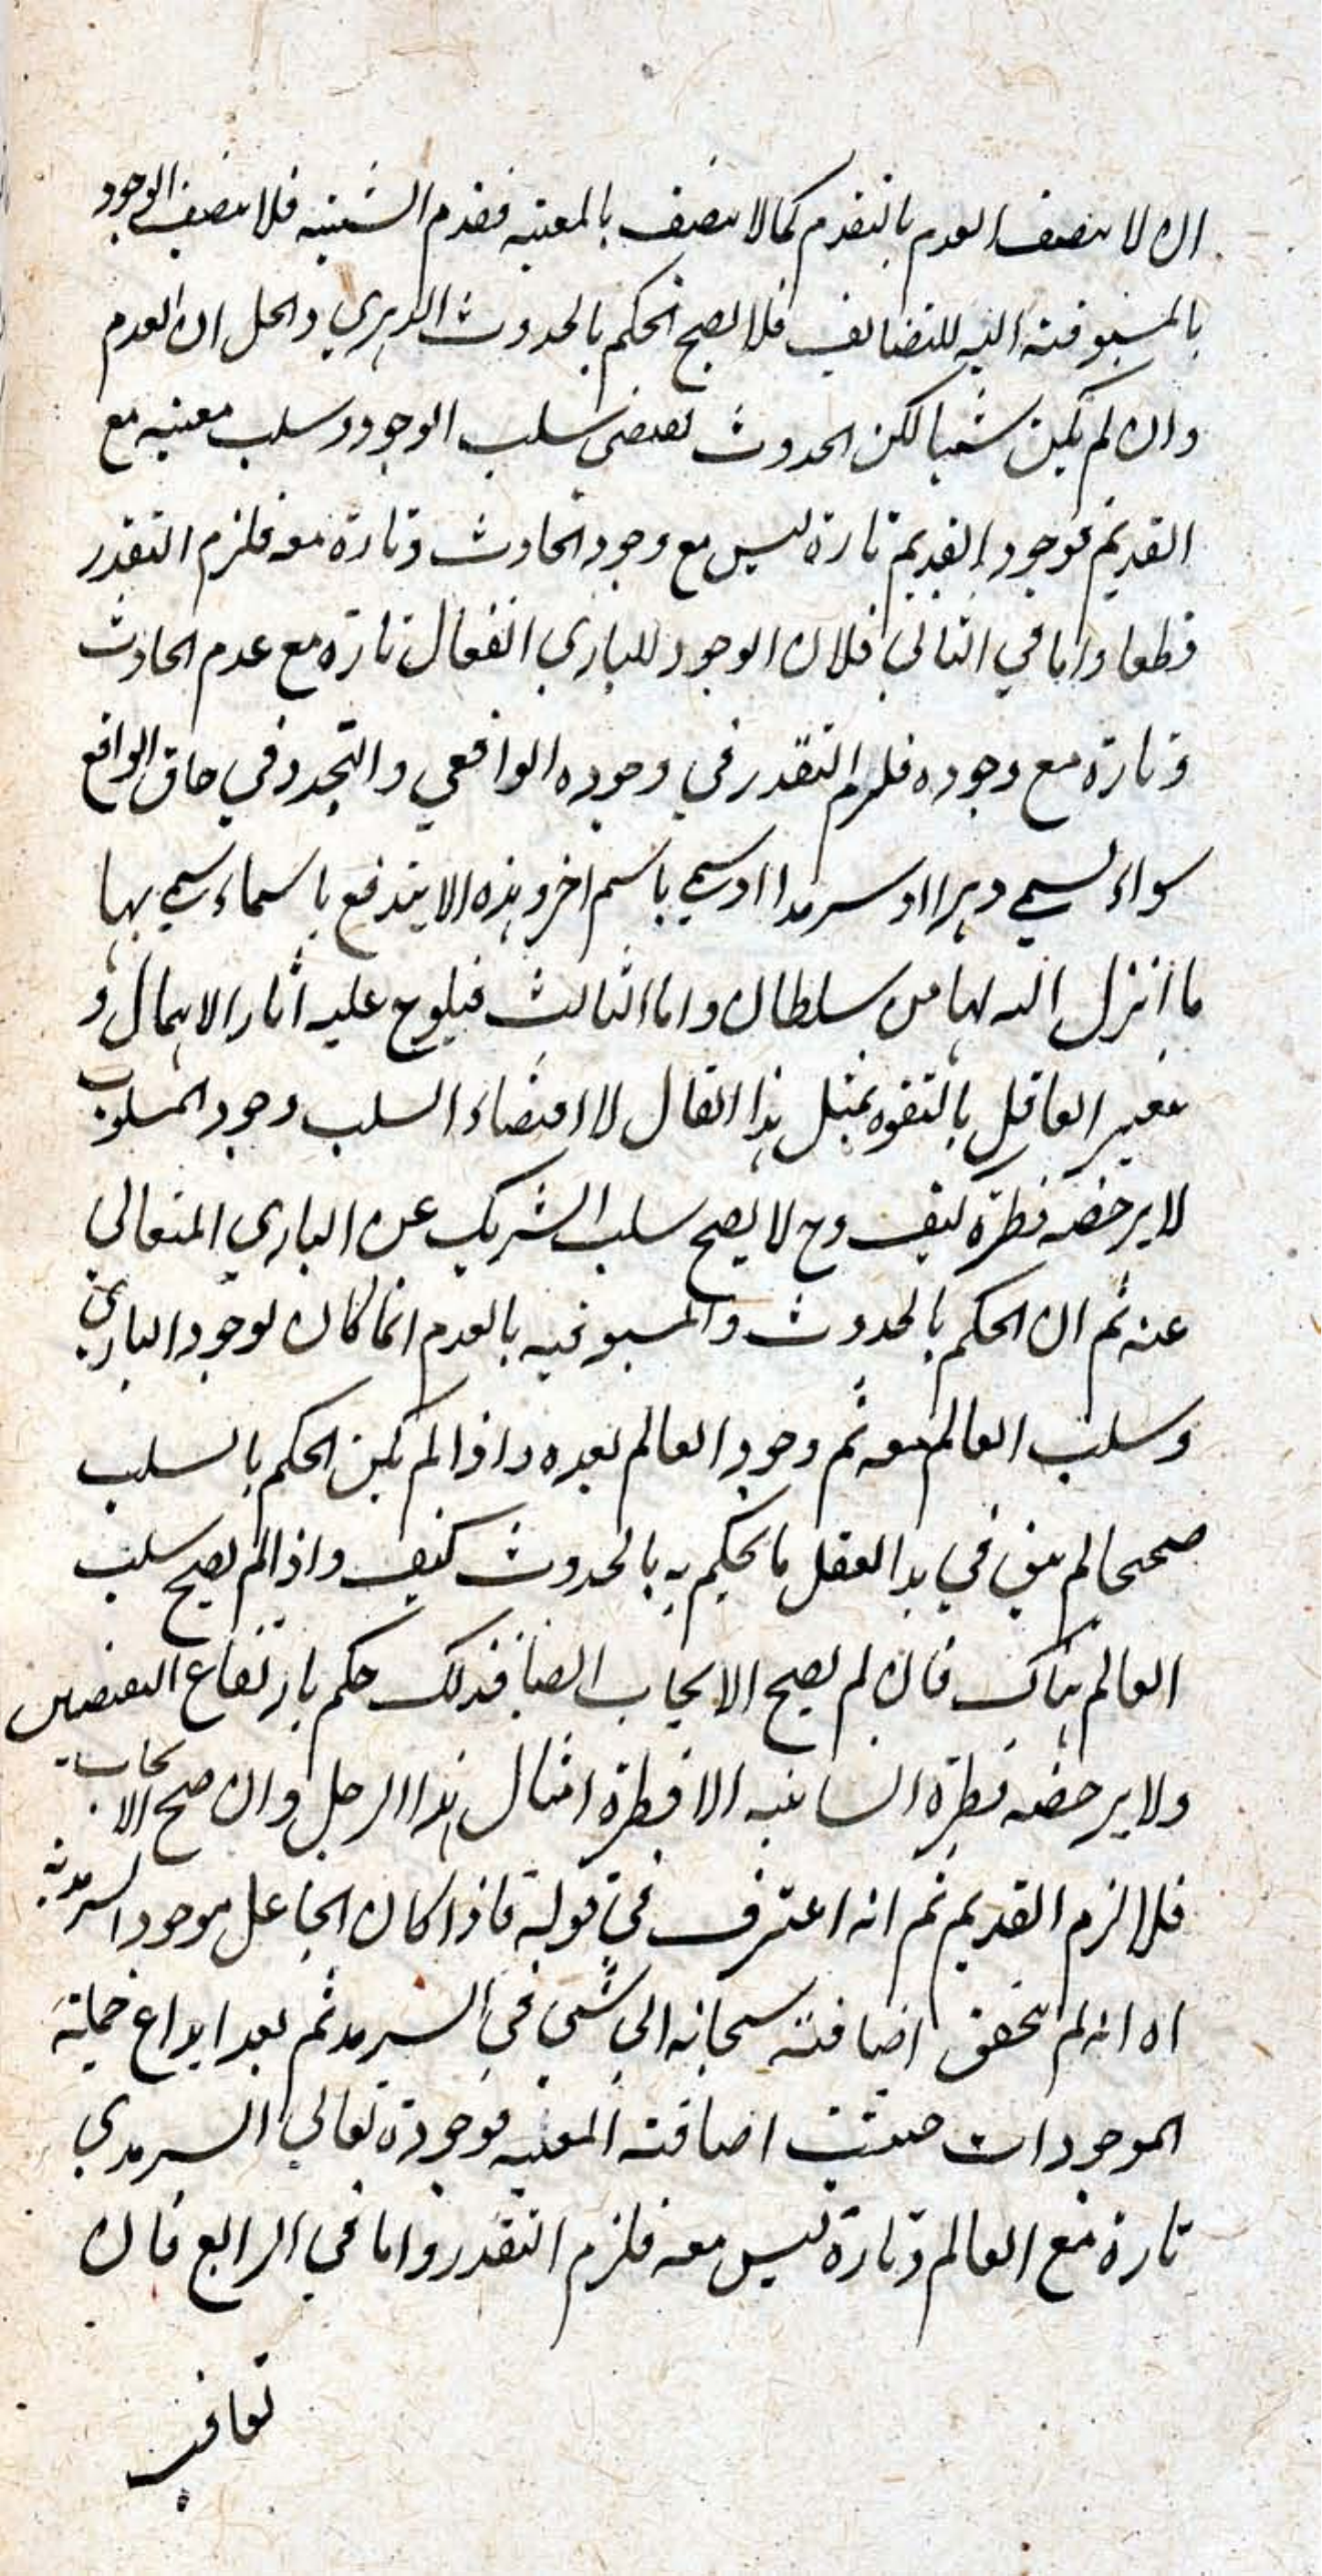 ان لا يتصف العدم بالتقدم كما لا يتصف بالمعية فقدم الشيئية فلا يتصف الوجود
بالمسبوقية اليه للتضايف فلا يصح الحكم بالحدوث الدهري والحل ان العدم
وان لم يكن شيئا لكن الحدوث يقتضي سلب الوجود وسلب معيته مع
القديم فوجود القديم تارة ليس مع وجود الحادث وتارة معه فلزم التقدر
قطعا واما في الثاني فلان الوجود للباري الفعال تارة مع عدم الحادث
وتارة مع وجوده فلزم التقدر في وجوده الواقعي والتجدد في حاق الواقع
سواء يسمى دهرا او سرمدا او يسمى باسم اخر وهذه لا يندفع باسماء يسمى بها
ما انزل الله بها من سلطان واما الثالث فيلوح عليه آثار الاهمال و
العاقل بالتفوه بمثل هذا القال لا اقتضاء السلب وجود المسلوب
لا يرخصه فطرة كيف وح لا يصح سلب الشريك عن الباري المتعالي
عنه ثم ان الحكم بالحدوث والمسبوقية بالعدم انما كان لوجود الباري
وسلب العالم معه ثم وجود العالم بعده واذا لم يكن الحكم بالسلب
صحيحا لم يبق في يد العقل ما يحكم به بالحدوث كيف واذا لم يصح سلب
العالم هناك فان لم يصح الايجاب ايضا فذلك حكم بارتفاع النقيضين
ولا يرخصه فطرة انسانية الا فطرة امثال هذا الرجل وان صح الايجاب
فلا لزم القديم ثم انه اعترف في قوله فاذا كان الجاعل موجود السرمدية
اه انه لم يتحقق اضافته سبحانه الى شيء في السرمد ثم بعد ابداع
الموجودات اضافته المعية فوجوده تعالى السرمدي
تارة مع العالم وتارة ليس معه فلزم التقدر واما في الرابع فان
تعاقب